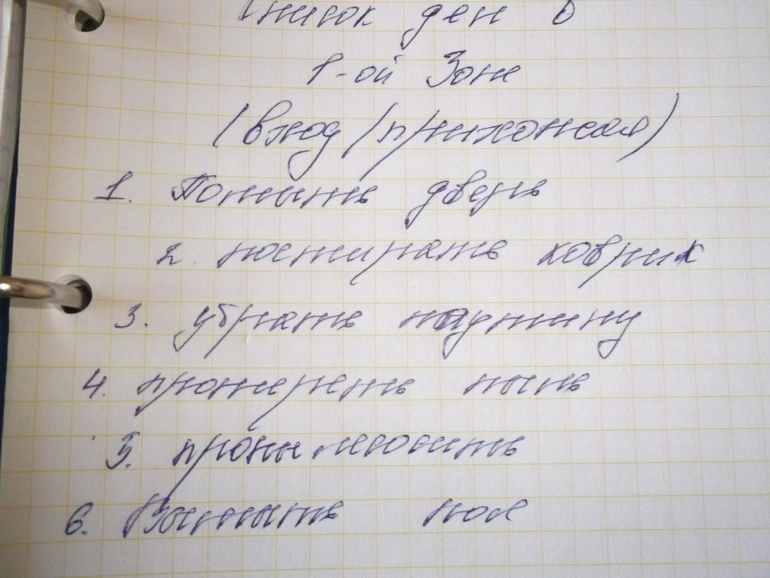 Список дел в
1-ой Зоне
(вход/прихожая)
1. Помыть дверь
2. постирать коврик
3. убрать паутину
4. протереть пыль
5. пропылесосить
6. Вымыть пол